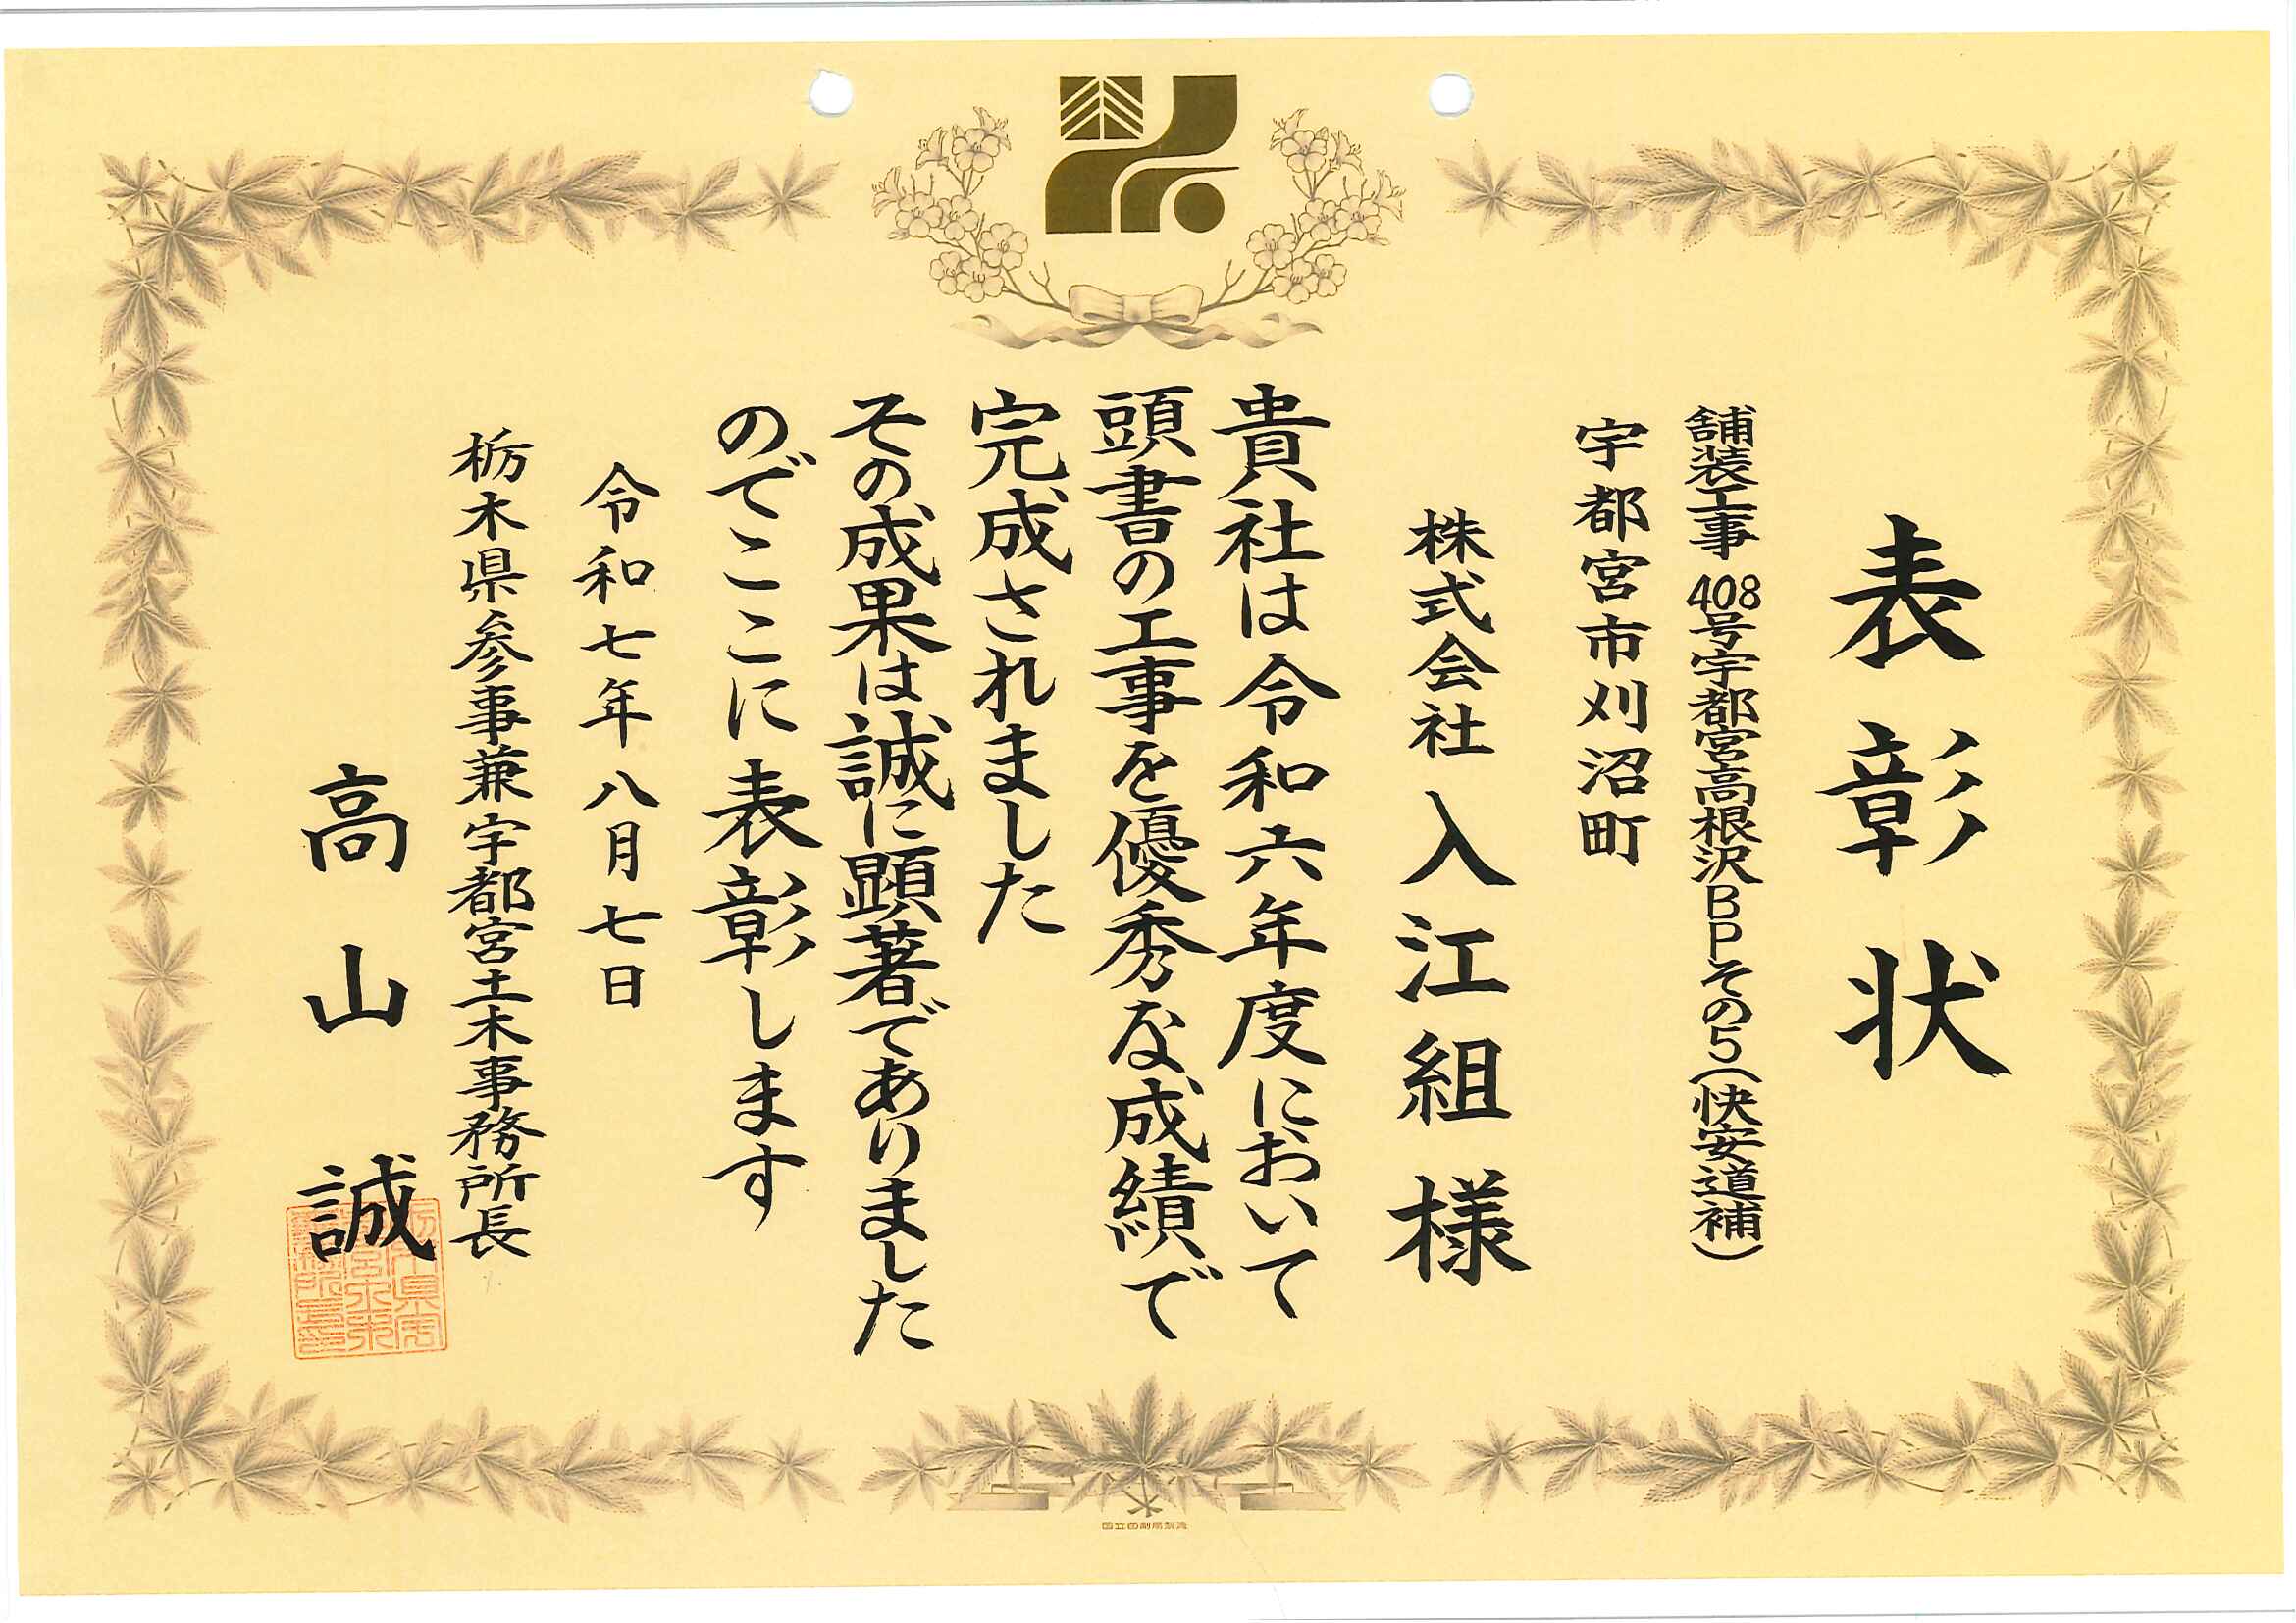 表彰状
舗装工事 408号宇都宮高根沢BPその5(快安道補)
宇都宮市刈沼町
株式会社 入江組 様
貴社は令和六年度において
頭書の工事を優秀な成績で
完成されました
その成果は誠に顕著でありました
のでここに表彰します
令和七年八月七日
栃木県参事兼宇都宮土木事務所長
高山 誠
国立印刷局製造